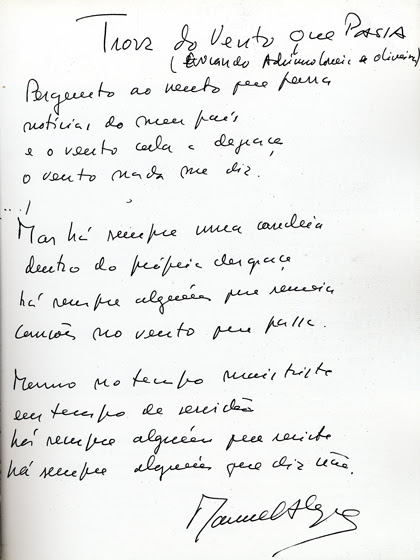 Trova do Vento que Passa
(Evocando Adriano Correia de Oliveira)
Pergunto ao vento que passa
notícias do meu país
e o vento cala a desgraça
o vento nada me diz.
Mas há sempre uma candeia
dentro da própria desgraça
há sempre alguém que semeia
canções no vento que passa.
Mesmo no tempo mais triste
em tempo de servidão
há sempre alguém que resiste
há sempre alguém que diz não.
Manuel Alegre